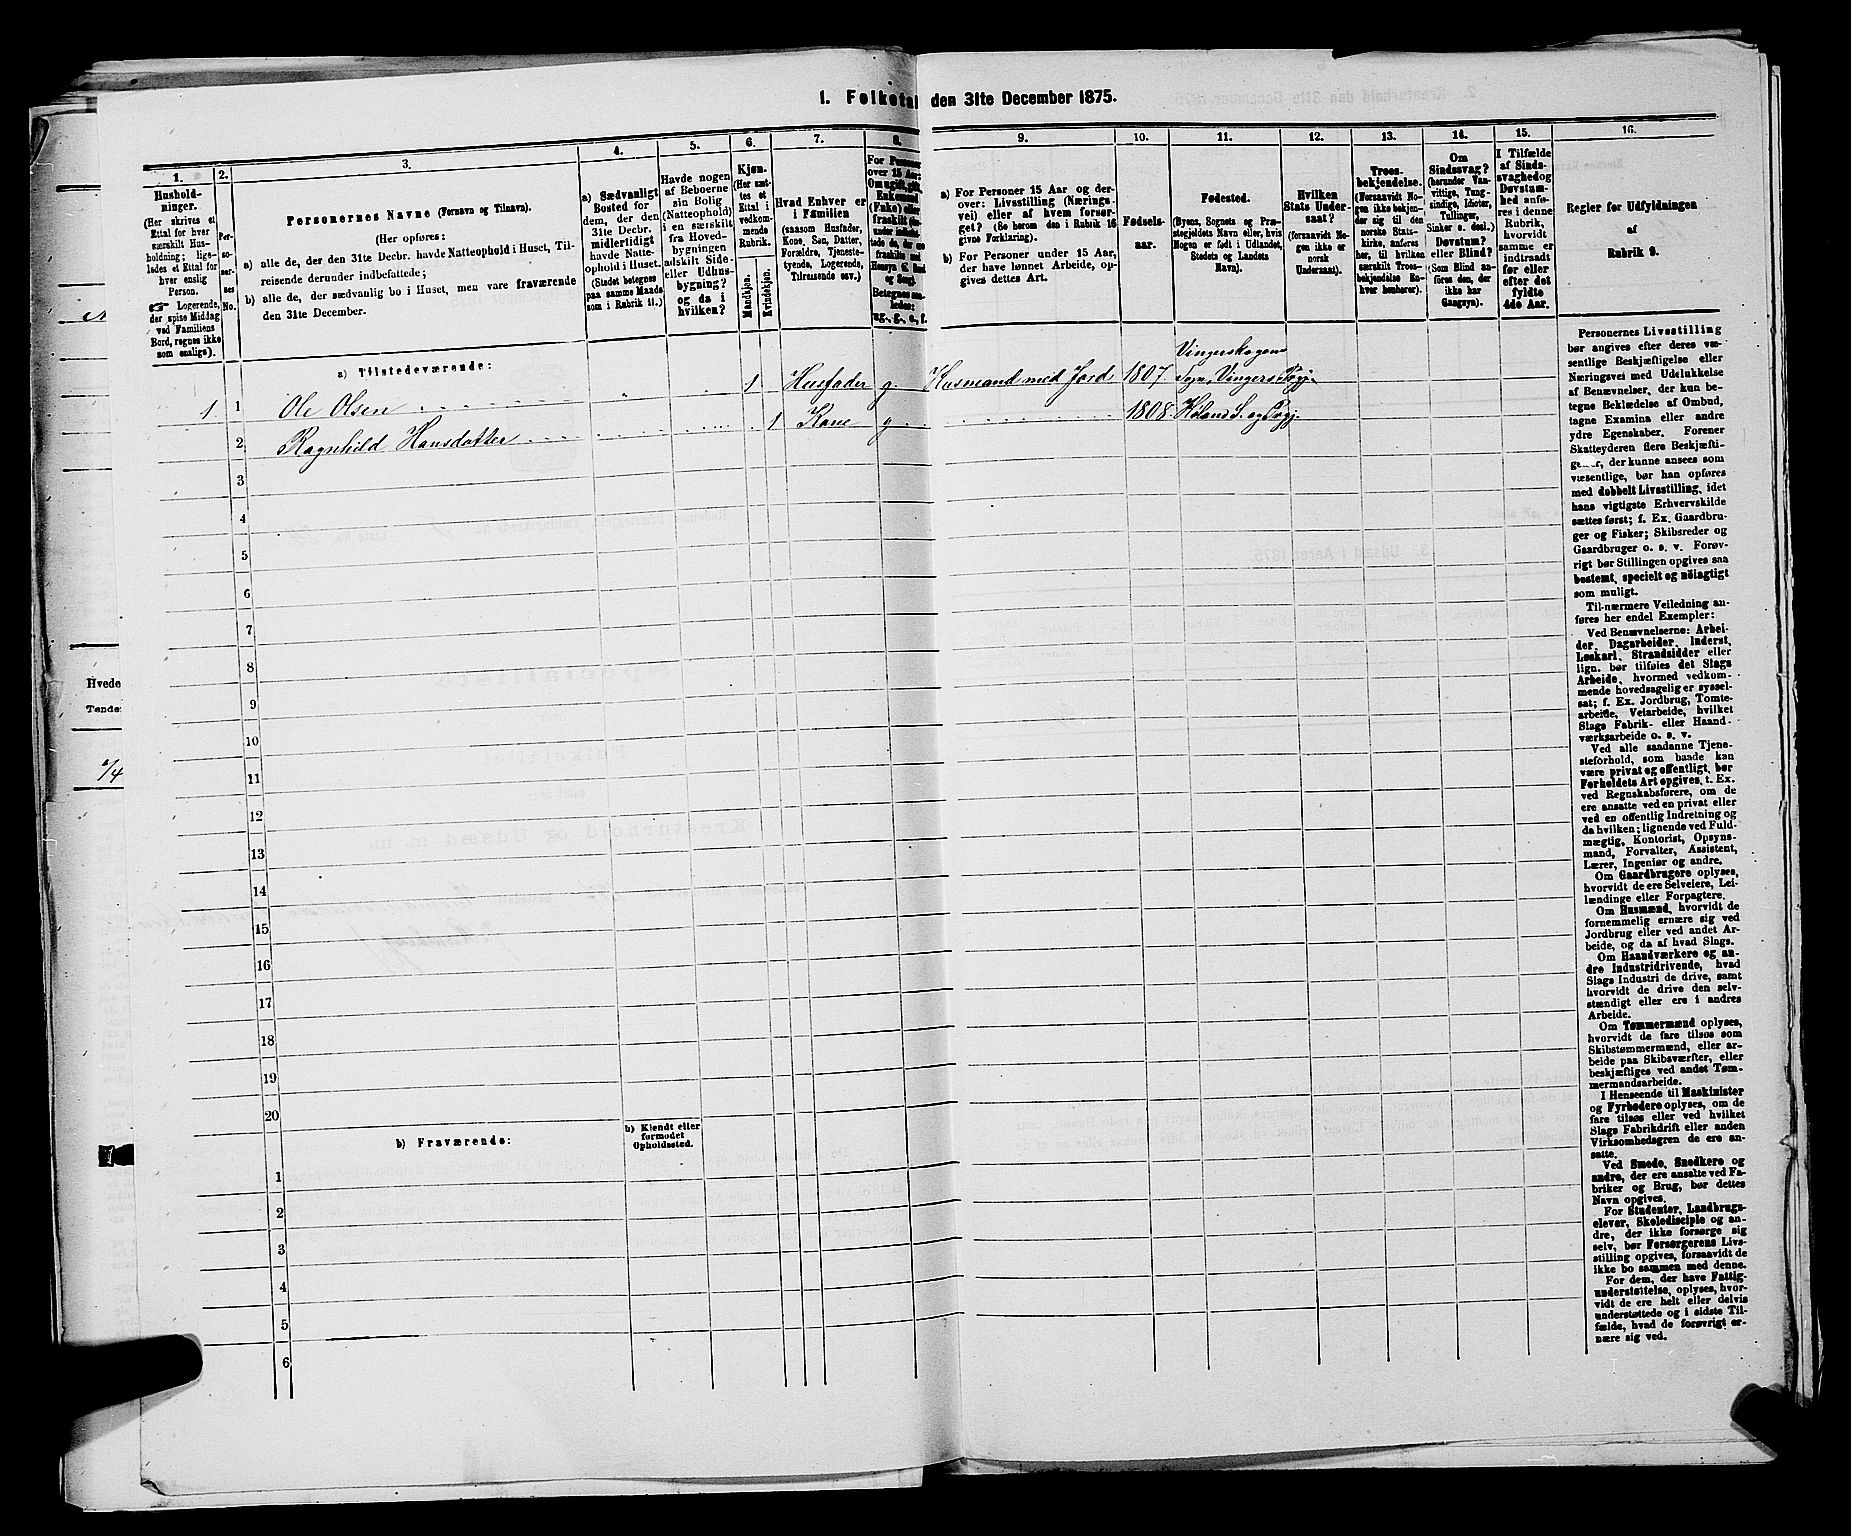 1. Folketal den 31te December 1875.
1.
Hushold-
ninger.
(Her skrives et
Ettal for hver
særskilt Hus-
holdning; lige-
ledes et Ettal for
hver enslig
Person.
Logerende,
der spise Middag
ved Familiens
Bord, regnes ikke
som enslige).
2.
Per-
so-
ner-
nes
No.
3.
Personernes Navne (Fornavn og Tilnavn).
(Her opføres:
a) alle de, der den 31te Decbr. havde Natteophold i Huset, Til-
reisende derunder indbefattede;
b) alle de, der sædvanlig bo i Huset, men vare fraværende
den 31te December.
4.
a) Sædvanligt
Bosted for
dem, der den
31te Decbr.
midlertidigt
havde Natte-
ophold i Huset.
(Stedet betegnes
paa samme Maade
som i Rubrik 11.)
5.
Havde nogen
af Beboerne
sin Bolig
(Natteophold)
i en særskilt
fra Hoved-
bygningen
adskilt Side-
eller Udhus-
bygning?
og da i
hvilken?
6.
Kjøn.
(Her sæt-
tes et
Ettal i
vedkom-
mende
Rubrik.
Mandkjøn.
Kvindekjøn.
7.
Hvad Enhver er
i Familien
(saasom Husfader,
Kone, Søn, Datter,
Forældre, Tjeneste-
tyende, Logerende,
Tilreisende osv.)
8.
For Personer
over 15 Aar:
Om ugift, gift,
Enkemand
(Enke) eller
fraskilt
Betegnes saa-
ledes:
ug., g., e., f.
9.
a) For Personer 15 Aar og der-
over: Livsstilling (Nærings-
vei) eller af hvem forsør-
get? (Se herom den i Rubrik 16
givne Forklaring).
b) For Personer under 15 Aar,
der have lønnet Arbeide, op-
gives dettes Art.
10.
Fødsels-
aar.
11.
Fødested.
(Byens, Sognets og Præ-
stegjeldets Navn eller, hvis
Nogen er født i Udlandet,
Stedets og Landets
Navn).
12.
Hvilken
Stats Under-
saat?
(forsaavidt No-
gen ikke er
norsk
Undersaat).
13.
Troes-
bekjendelse.
(Forsaavidt No-
gen ikke bekjen-
der sig til den
norske Stats-
kirke, anføres
her, til hvilken
særskilt Troes-
bekjendelse En-
hver henhører).
14.
Om
Sindssvag?
(herunder Van-
vittige, Tung-
sindige, Idioter,
Tullinger,
Sinker o. desl.)
Døvstum?
eller Blind?
(Som Blind an-
føres den, der
ikke har
Gangsyn).
15.
I Tilfælde
af Sinds-
svaghed og
Døvstum-
hed anfø-
res i denne
Rubrik,
hvorvidt
samme er
indtraadt
før eller
efter det
fyldte
4de Aar.
16.
Regler for Udfyldningen
af
Rubrik 9.
a) Tilstedeværende:
1 1 Ole Olsen 1 Husfader g. Husmand med Jord 1807. Vingerskogens
Sogn, Vingers Prgj.
2 Ragnhild Hansdatter 1 Kone g. 1808. Høland S. og Prgj.
3
4
5
6
7
8
9
10
11
12
13
14
15
16
17
18
19
20
b) Fraværende:
b) Kjendt eller
formodet
Opholdssted.
1
2
3
4
5
6
Personernes Livsstilling
bør angives efter deres væ-
sentlige Beskjæftigelse eller
Næringsvei med Udelukkelse
af Benævnelser, der kun be-
tegne Beklædelse af Ombud,
tagne Examina eller andre
ydre Egenskaber. Forener
Skatteyderen flere Beskjæfti-
gelser, der kunne ansees som
væsentlige, bør han opføres
med dobbelt Livsstilling, idet
hans vigtigste Erhvervskilde
sættes først; f. Ex. Gaardbru-
ger og Fisker; Skibsreder og
Gaardbruger o. s. v. Forøv-
rigt bør Stillingen opgives saa
bestemt, specielt og nøiagtigt
som muligt.
Til nærmere Veiledning an-
føres her endel Exempler:
Ved Benævnelserne: Arbei-
der, Dagarbeider, Inderst,
Løskarl, Strandsidder eller
lign. bør tilføies det Slags
Arbeide, hvormed vedkom-
mende hovedsagelig er syssel-
sat; f. Ex. Jordbrug, Tomte-
arbeide, Veiarbeide, hvilket
Slags Fabrik- eller Haand-
værksarbeide o. s. v.
Ved alle saadanne Tjene-
steforhold, som baade kan
være privat og offentligt, bør
Forholdets Art opgives, t. Ex.
ved Regnskabsførere, om de
ere ansatte ved en privat eller
ved en offentlig Indretning og
da hvilken; lignende ved Fuld-
mægtig, Kontorist, Opsyns-
mand, Forvalter, Assistent,
Lærer, Ingeniør og andre.
Om Gaardbrugere oplyses,
hvorvidt de ere Selveiere, Lei-
lændinge eller Forpagtere.
Om Husmænd, hvorvidt de
fornemmelig ernære sig ved
Jordbrug eller ved andet Ar-
beide, og da af hvad Slags.
Om Haandværkere og an-
dre Industridrivende, hvad
Slags Industri de drive, samt
hvorvidt de drive den selv-
stændigt eller ere i andres
Arbeide.
Om Tømmermænd oplyses,
hvorvidt de fare tilsøs som
Skibstømmermænd, eller ar-
beide paa Skibsværfter, eller
beskjæftiges ved andet Tøm-
mermandsarbeide.
I Henseende til Maskinister
og Fyrbødere oplyses, om de
fare tilsøs eller ved hvilket
Slags Fabrikdrift eller anden
Virksomhedsgren de ere an-
satte.
Ved Smede, Snedkere og
andre, der ere ansatte ved Fa-
briker og Brug, bør dettes
Navn opgives.
For Studenter, Landbrugs-
elever, Skoledisciple og an-
dre, der ikke forsørge sig
selv, bør Forsørgerens Livs-
stilling opgives, forsaavidt de
ikke bo sammen med denne.
For dem, der have Fattig-
understøttelse, oplyses, hvor-
vidt de ere helt eller delvis
understøttede og i sidste Til-
fælde, hvad de forøvrigt er-
nære sig ved.
Hvede
Tønder